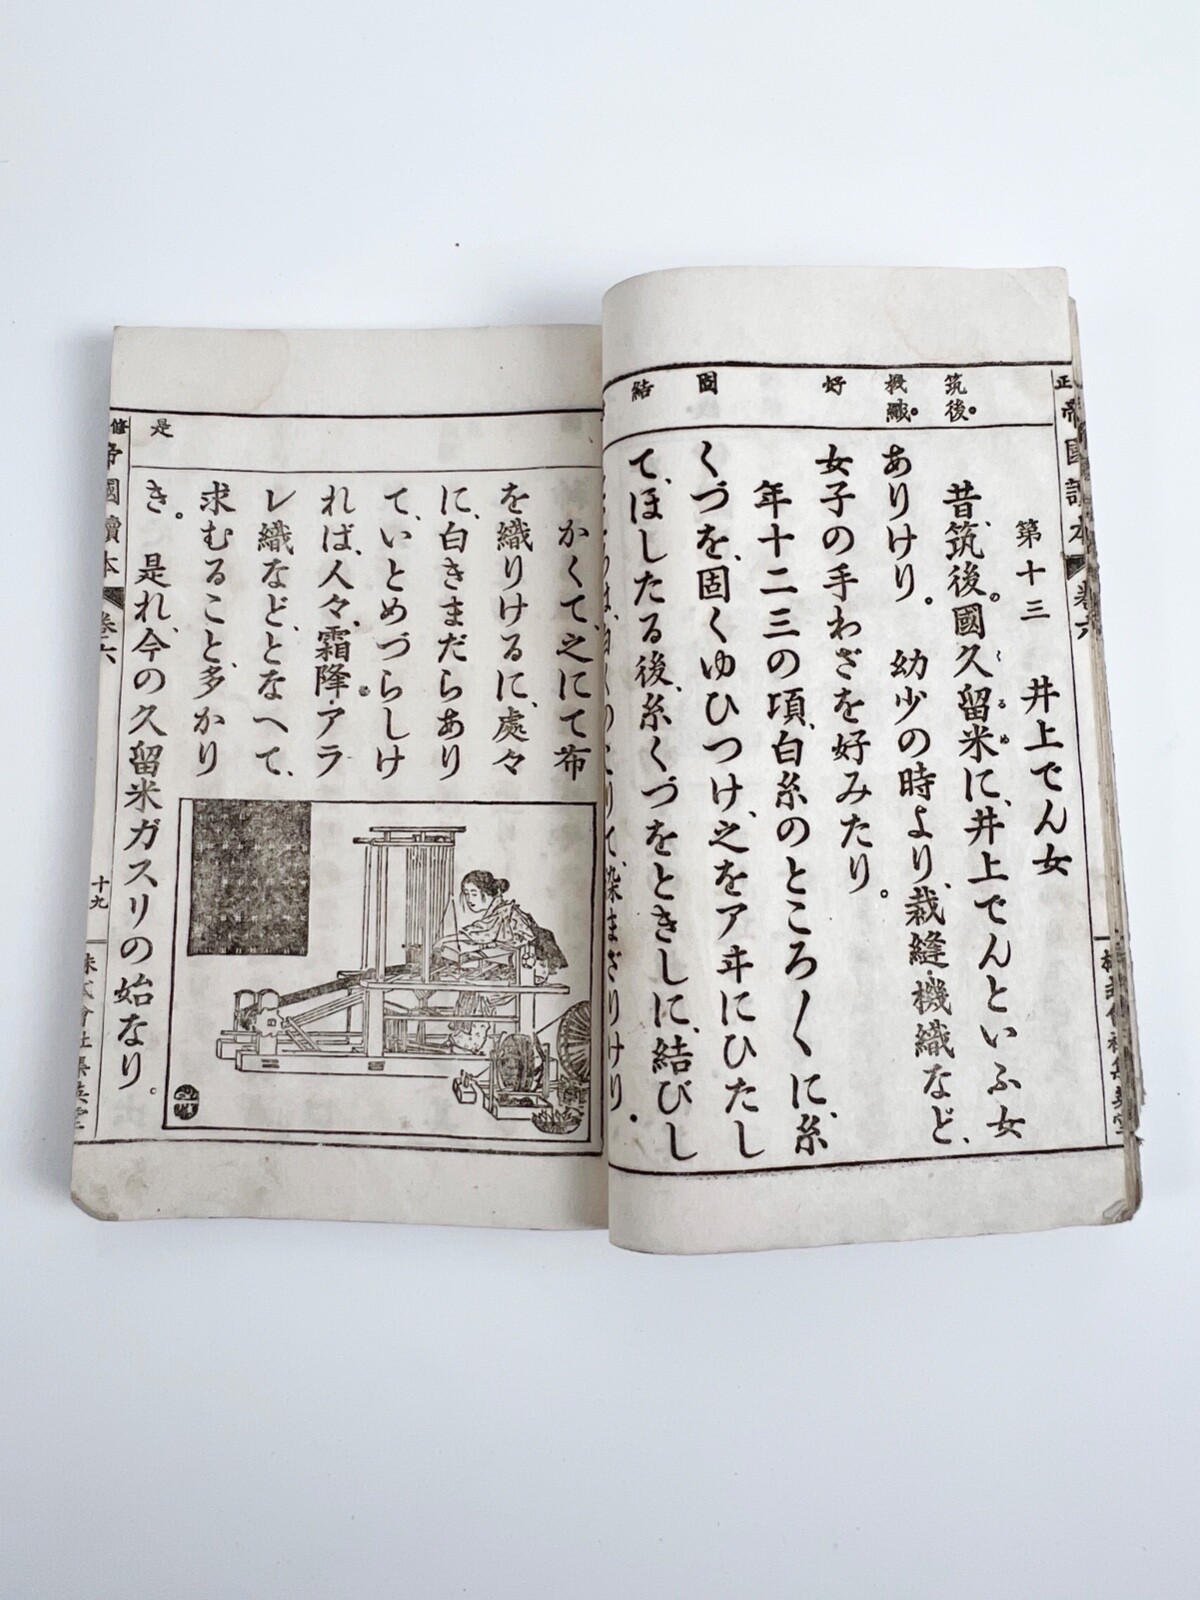 筑後。
機織。
好
固
結
第十三　井上でん女
昔、筑後。國久留米に、井上でんといふ女
くるめ
ありけり。幼少の時より、裁縫・機織など、
女子の手わざを好みたり。
年十二三の頃、白糸のところ〱に、糸
くづを、固くゆひつけ、之をアヰにひたし
て、ほしたる後、糸くづをときしに、結びし
まざりけり。
帝國讀本
卷六
是
かくて、之にて布
を織りけるに、處々
に、白きまだらあり
て、いとめづらしけ
れば、人々、霜降・アラ
レ織などゝとなへて、
求むること、多かり
き。　是れ、今の久留米ガスリの始なり。
修
帝國讀本
卷六
十九
株式會社集英堂